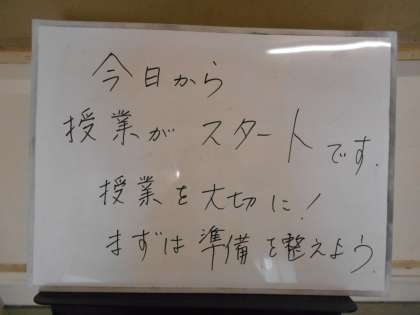 今日から
授業がスタートです.
授業を大切に!
まずは準備を整えよう.